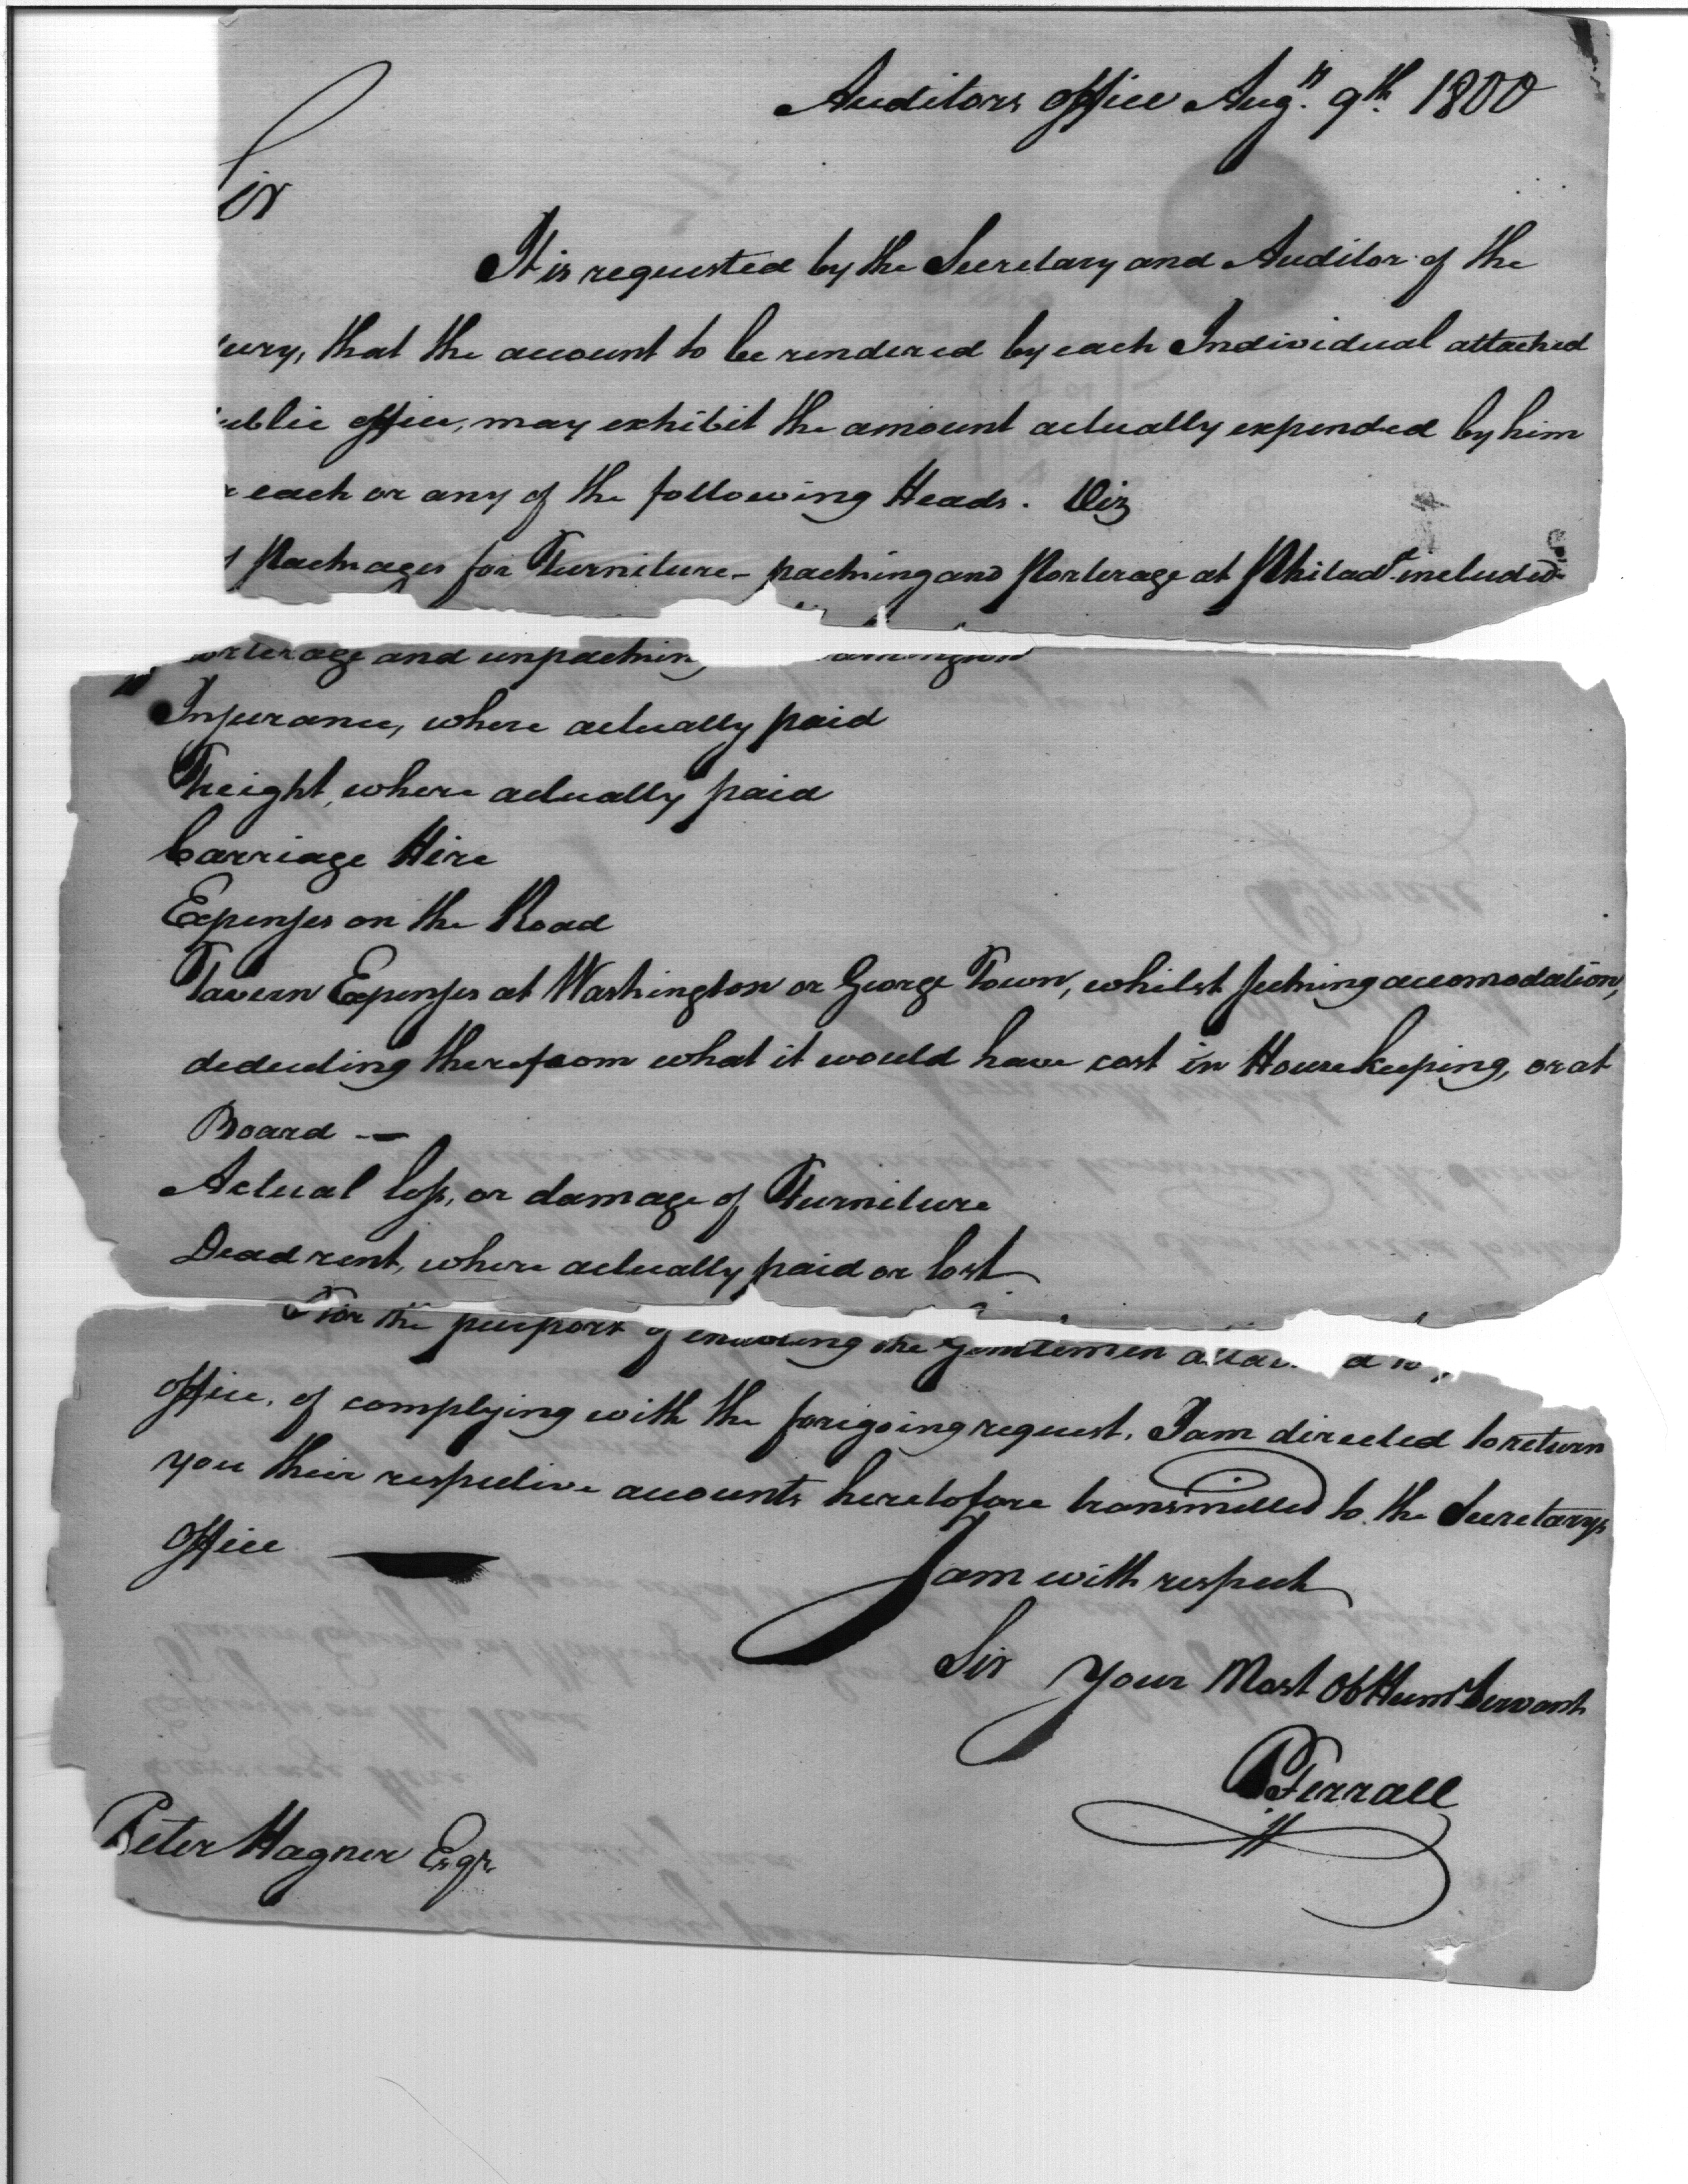 Auditors office Augt. 9th. 1800
Sir
It is requested by the Secretary and Auditor of the
ury, that the account to be rendered by each Individual attached
ublic office, may exhibit the amount actually expended by him
each or any of the following Heads. Viz
Packages for Furniture - packing and Porterage at Philada. included
orterage and unpacking
Insurance, where actually paid
Freight, where actually paid
Carriage Hire
Expenses on the Road
Tavern Expenses at Washington or George Town, whilst seeking accomodation,
deducting therefrom what it would have cost in Housekeeping, or at
Board —
Actual loss, or damage of Furniture
Dead rent, where actually paid or lost
For the purpose of enabling the Gentlemen
office, of complying with the foregoing request, I am directed to return
you their respective accounts heretofore transmitted to the Secretarys
office
I am with respect
Sir your Most Ob Huml Servant
PFerrall
Peter Hagner Esqr.